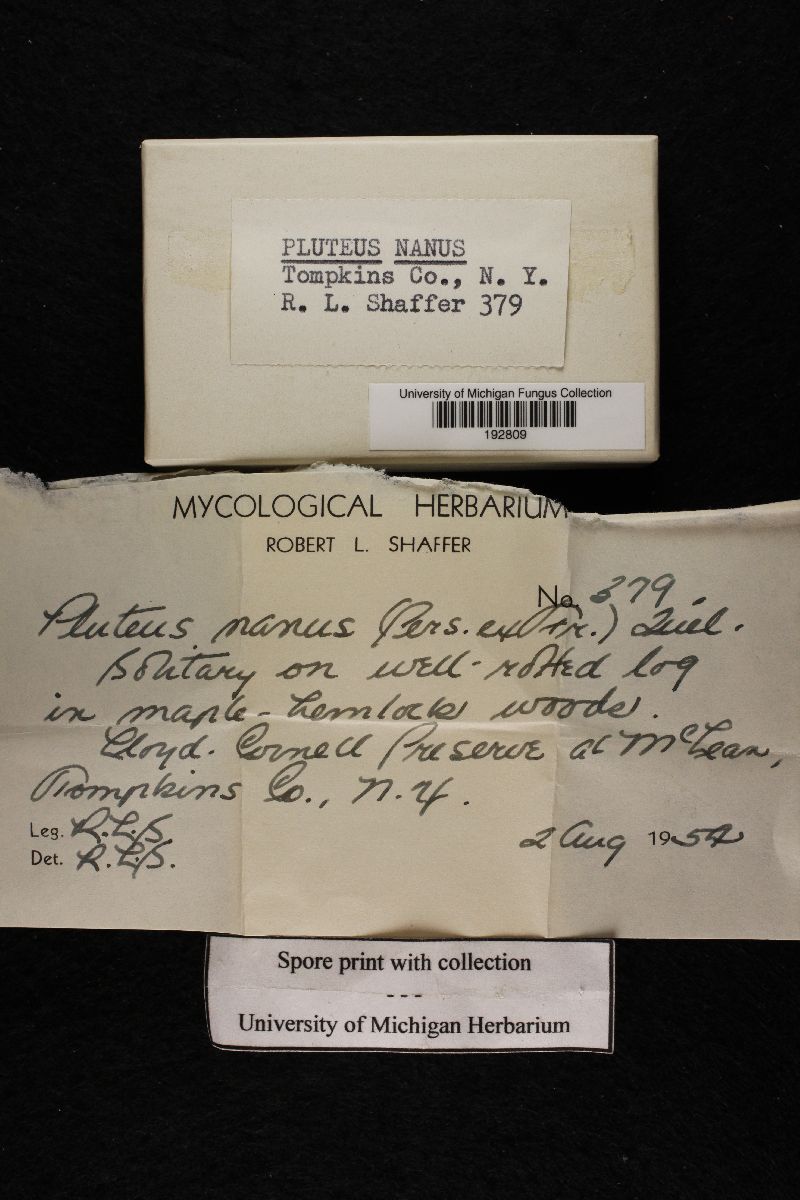 PLUTEUS NANUS
Tompkins Co., N. Y.
R. L. Shaffer 379
University of Michigan Fungus Collection
192809
MYCOLOGICAL HERBARIUM
ROBERT L. SHAFFER
No. 379.
Pluteus nanus (Pers. ex Fr.) Quél.
Solitary on well-rotted log
in maple-hemlock woods.
Lloyd-Cornell Preserve at McLean,
Tompkins Co., N.Y.
Leg. R.L.S.
Det. R.L.S.
2 Aug 1954
Spore print with collection
---
University of Michigan Herbarium